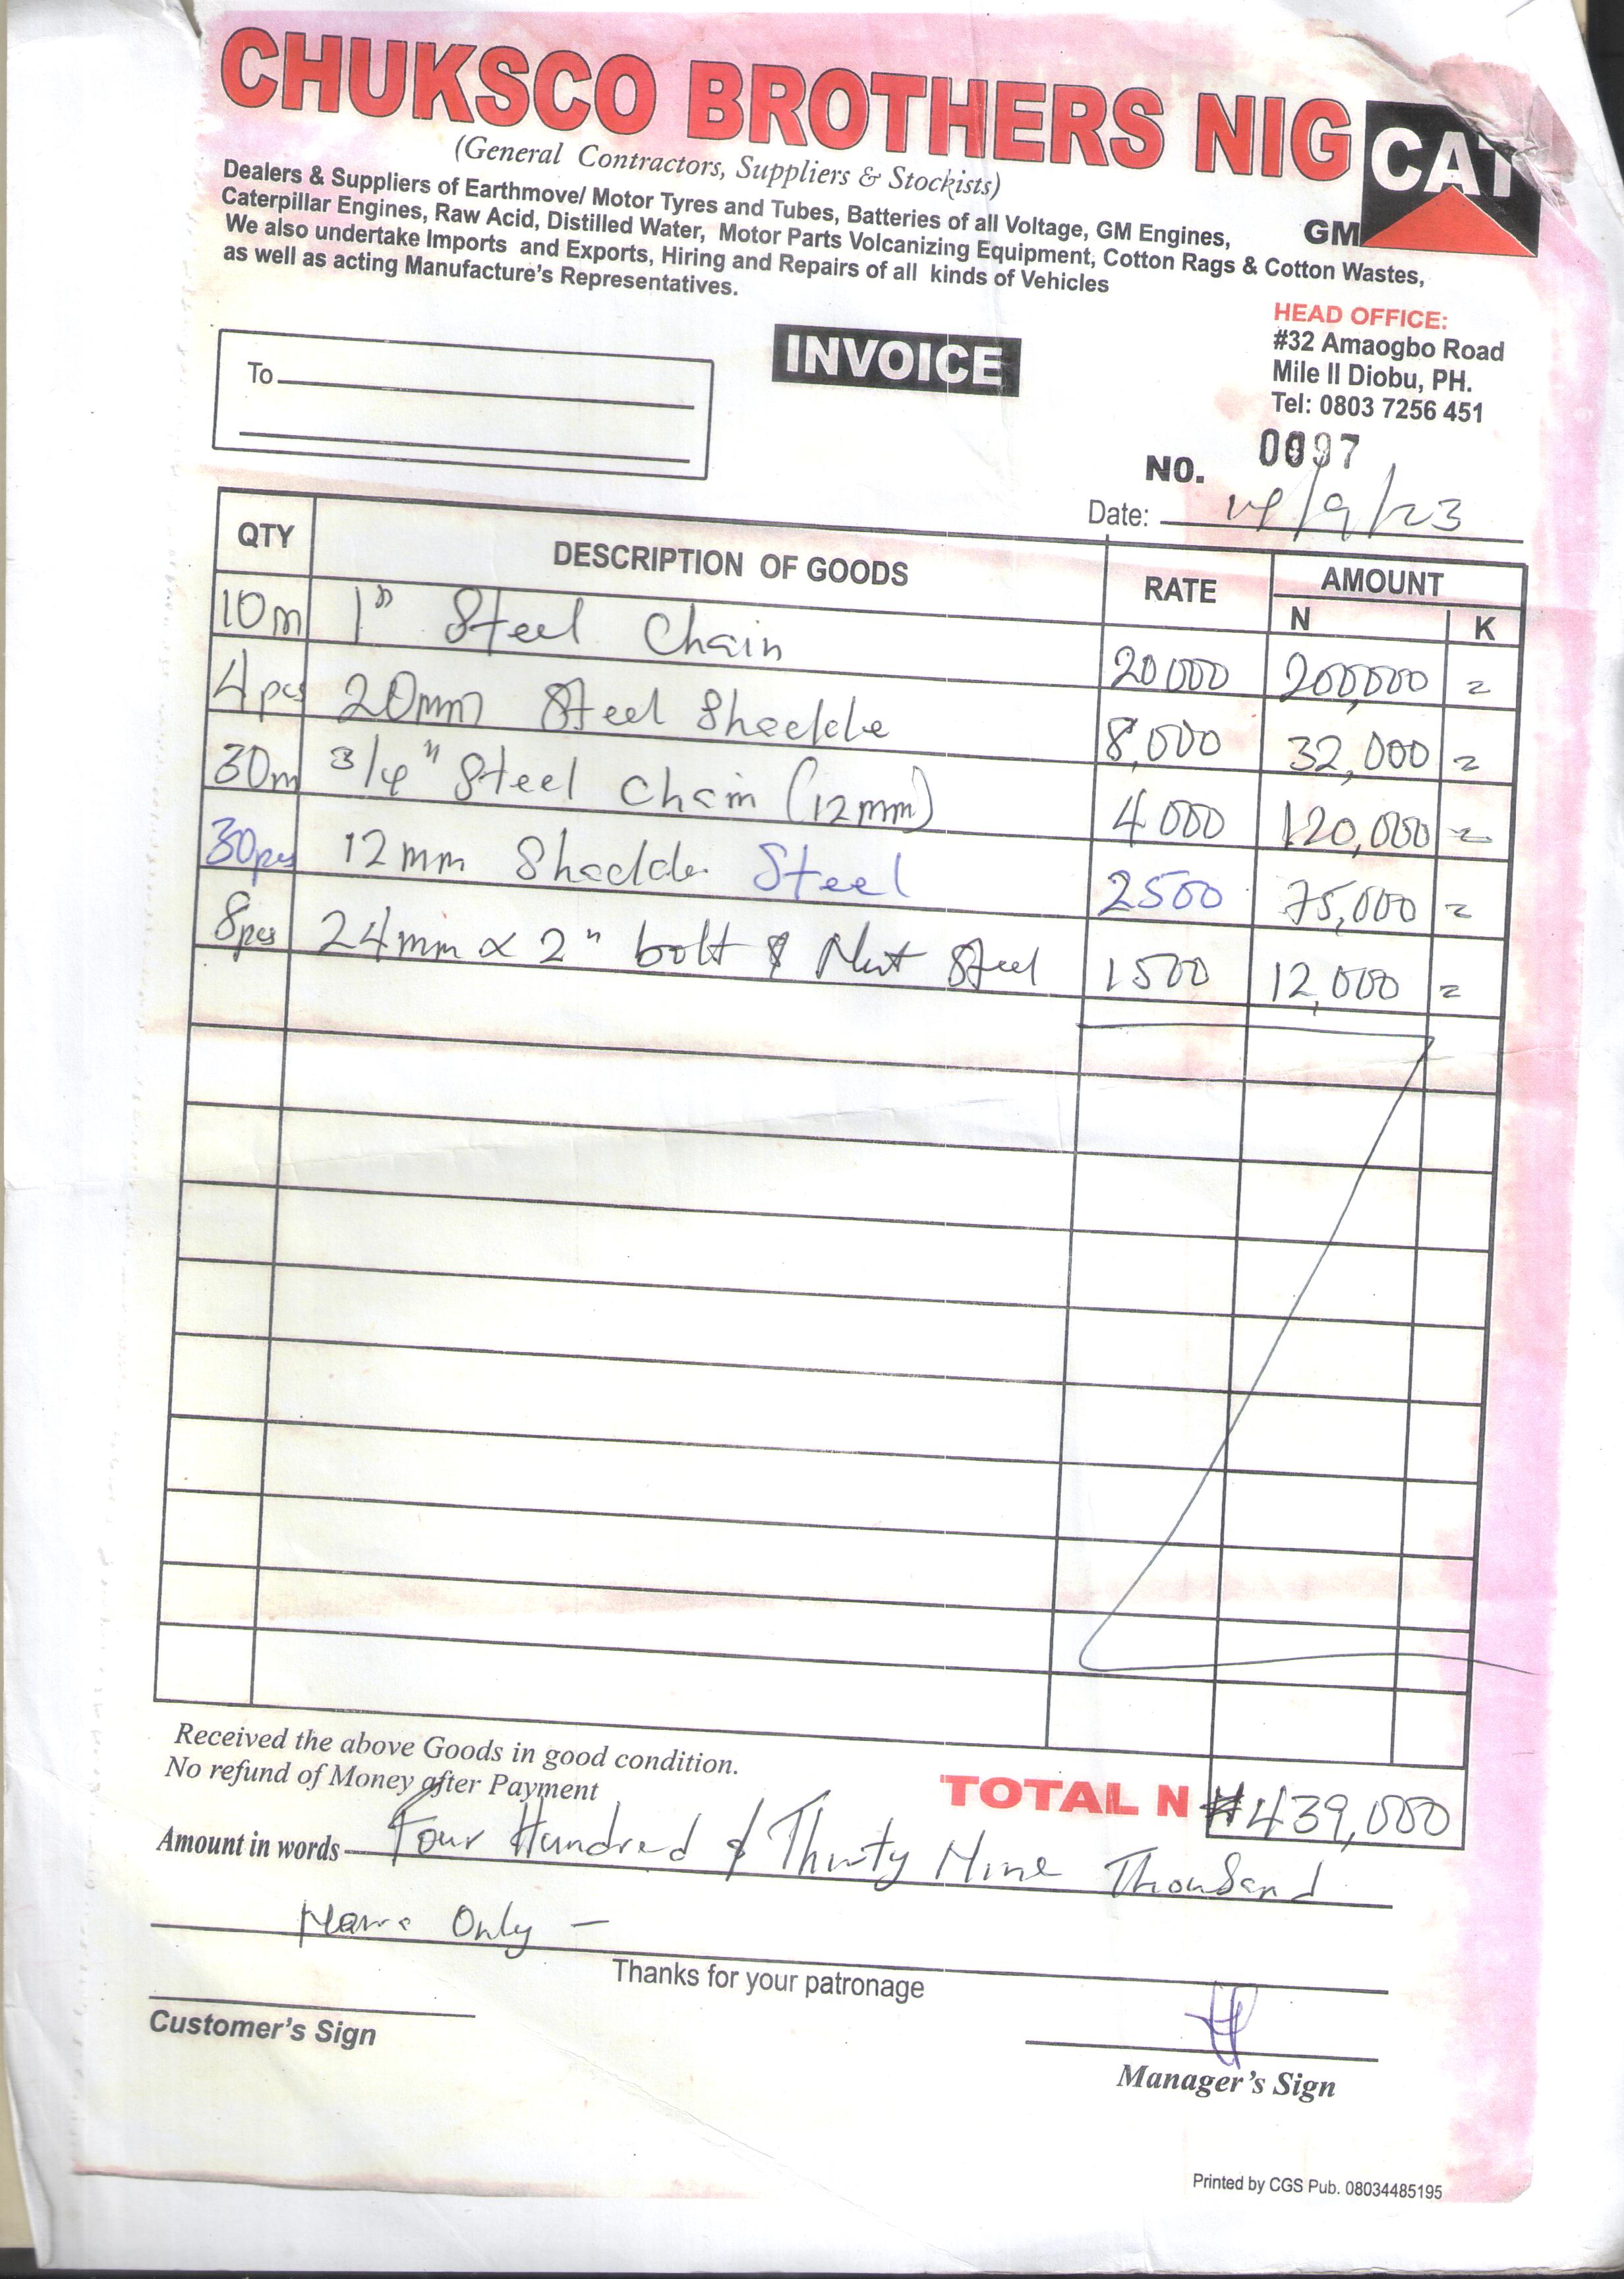 CHUKSCO BROTHERS NIG
CAT
(General Contractors, Suppliers & Stockists)
GM
Dealers & Suppliers of Earthmove/ Motor Tyres and Tubes, Batteries of all Voltage, GM Engines,
Caterpillar Engines, Raw Acid, Distilled Water, Motor Parts Volcanizing Equipment, Cotton Rags & Cotton Wastes,
We also undertake Imports and Exports, Hiring and Repairs of all kinds of Vehicles
as well as acting Manufacture's Representatives.
HEAD OFFICE:
#32 Amaogbo Road
Mile II Diobu, PH.
Tel: 0803 7256 451
INVOICE
To
NO. 0097
Date: 14/9/23
QTY DESCRIPTION OF GOODS RATE AMOUNT
N K
10m 1" Steel Chain 20000 200,000 =
4pcs 20mm Steel Sheckle 8,000 32,000 =
30m 3/4" Steel Chain (12mm) 4000 120,000 =
30pcs 12mm Sheckle Steel 2500 75,000 =
8pcs 24mm x 2" bolt & Nut Steel 1500 12,000 =
Received the above Goods in good condition.
No refund of Money after Payment
TOTAL N ₦439,000
Amount in words Four Hundred & Thirty Nine Thousand
Naira Only -
Thanks for your patronage
Customer's Sign
Manager's Sign
Printed by CGS Pub. 08034485195